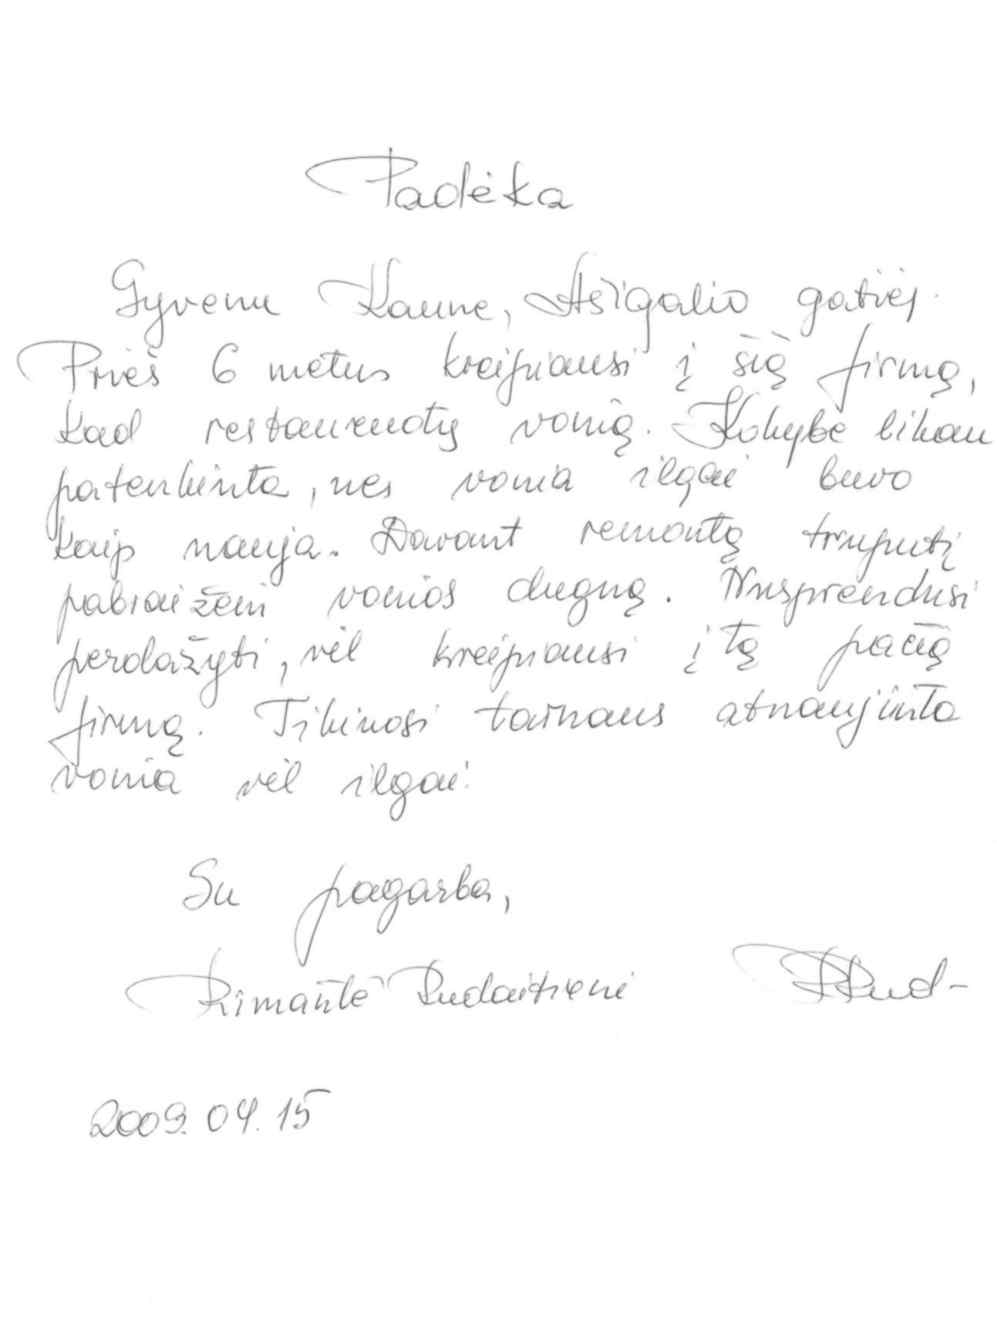 Padėka
Gyvenu Kaune, Ašigalio gatvėj.
Prieš 6 metus kreipiausi į šią firmą,
kad restauruotų vonią. Kokybe likau
patenkinta, nes vonia ilgai buvo
kaip nauja. Darant remontą truputį
pabraižėm vonios dugną. Nusprendusi
perdažyti, vėl kreipiausi į tą pačią
firmą. Tikiuosi tarnaus atnaujinta
vonia vėl ilgai!
Su pagarba,
Rimantė Rudaitienė
2009.04.15